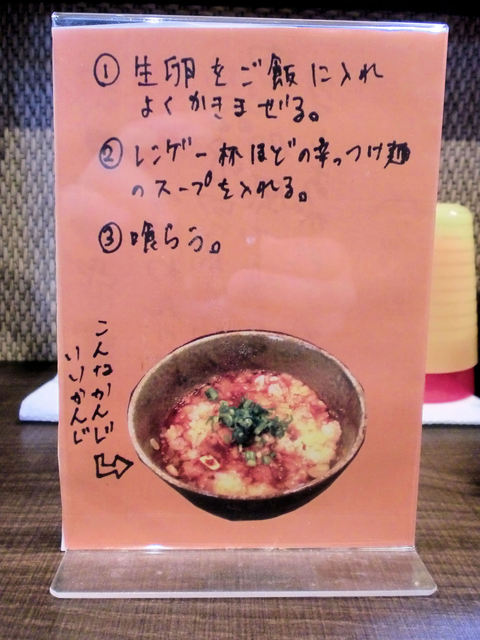 ① 生卵をご飯に入れ
よくかきまぜる。
② レンゲ一杯ほどの辛っつけ麺
のスープを入れる。
③ 喰らう。
こんなかんじ
いいかんじ